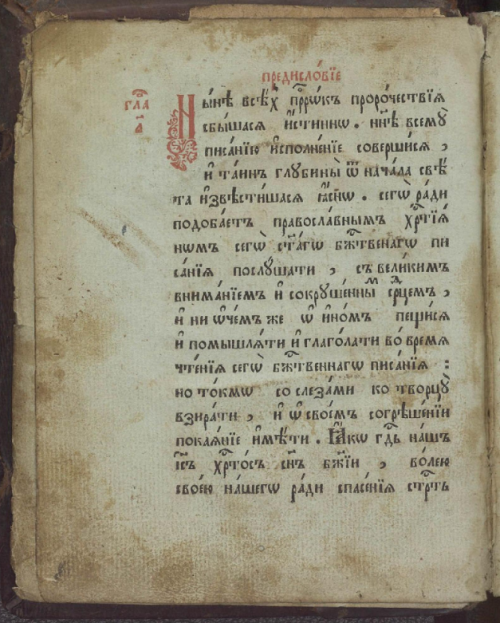 предисло́вїе
гла҃
а҃
Ны́нѣ всѣ́хъ прⷪ҇ро́къ проро́чествїѧ
сбы́шасѧ и҆́стиннѡ . нн҃ѣ всемꙋ̀
писа́нїю и҆сполне́нїе соверши́сѧ ,
и҆ та́инъ глꙋбины̀ ѿ нача́ла свѣ́
та и҆звѣсти́шасѧ ꙗ҆́снѡ . сегѡ̀ ра́ди
подоба́етъ правосла́внымъ хрⷭ҇тїѧ́
нѡмъ сегѡ̀ ст҃а́гѡ бж҃твенагѡ пи
са́нїѧ послꙋ́шати , съ вели́кимъ
внима́нїемъ и҆ сокрꙋше́ннымъ срⷣцемъ ,
и҆ ни ѡ҆ че́мъ же ѡ҆ и҆но́мъ пещи́сѧ
и҆ помышлѧ́ти и҆ глаго́лати во́ времѧ
чте́нїѧ сегѡ̀ бж҃твеннагѡ писа́нїѧ :
но то́кмѡ со слеза́ми ко творцꙋ̀
взира́ти , и҆ ѡ҆ свое́мъ согрѣше́нїи
покаѧ́нїе и҆мѣ́ти . Ꙗ҆́кѡ гдⷭ҇ь на́шъ
і҆с҃ъ хрⷭ҇то́съ сн҃ъ бж҃їи , во́лею
свое́ю на́шегѡ ра́ди спасе́нїѧ стрⷭ҇ть